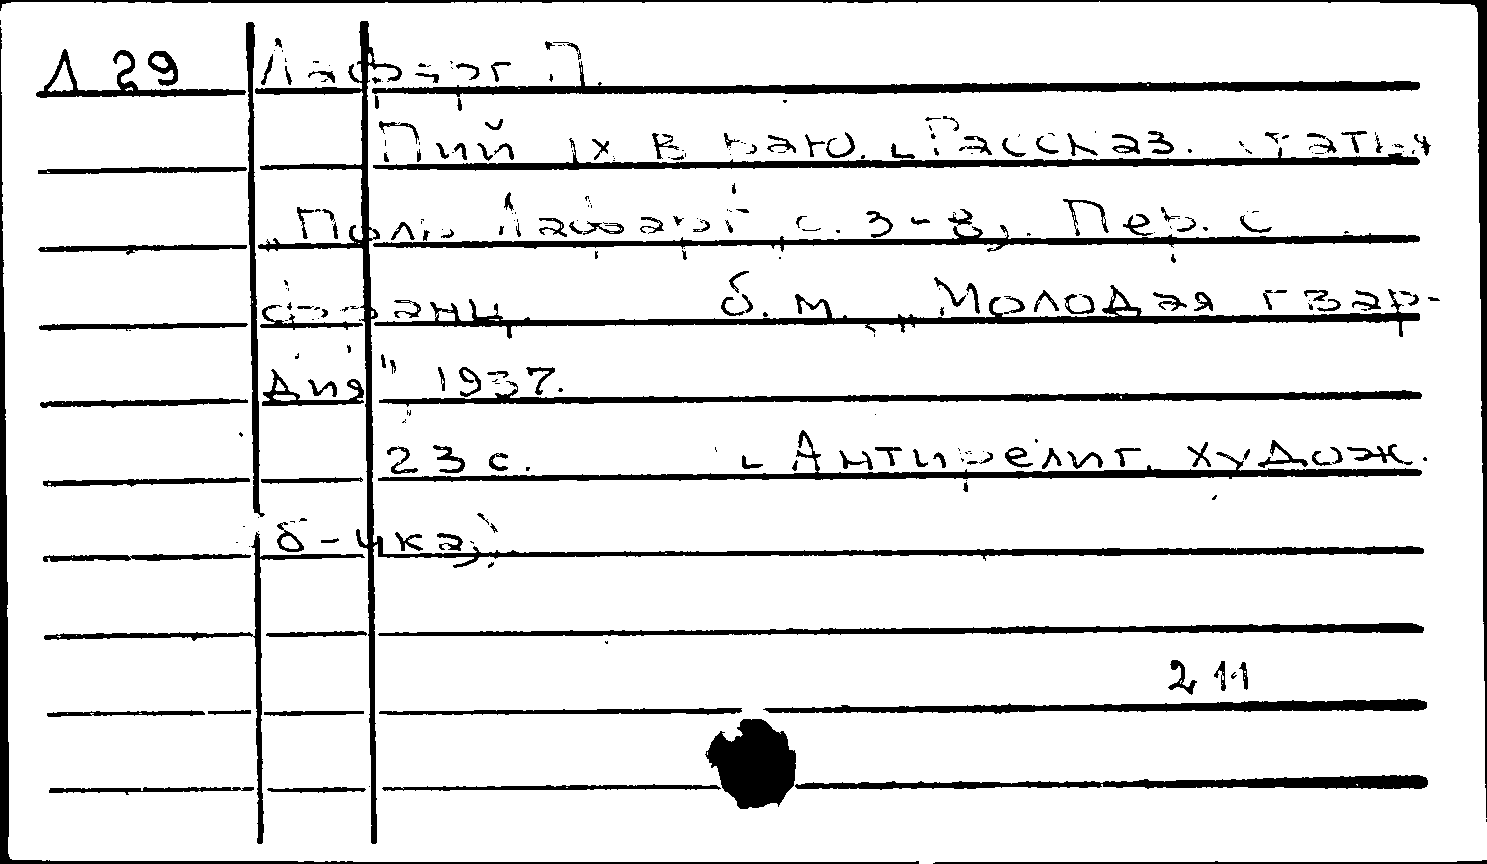 Л 29 Лафарг П.
Пий IX в раю. (Рассказ. Статья
„Поль Лафарг„ с. 3-8). Пер. с
франц. б. м. „Молодая гвар-
дия" 1937.
23 с. (Антирелиг. худож.
б-чка)
211